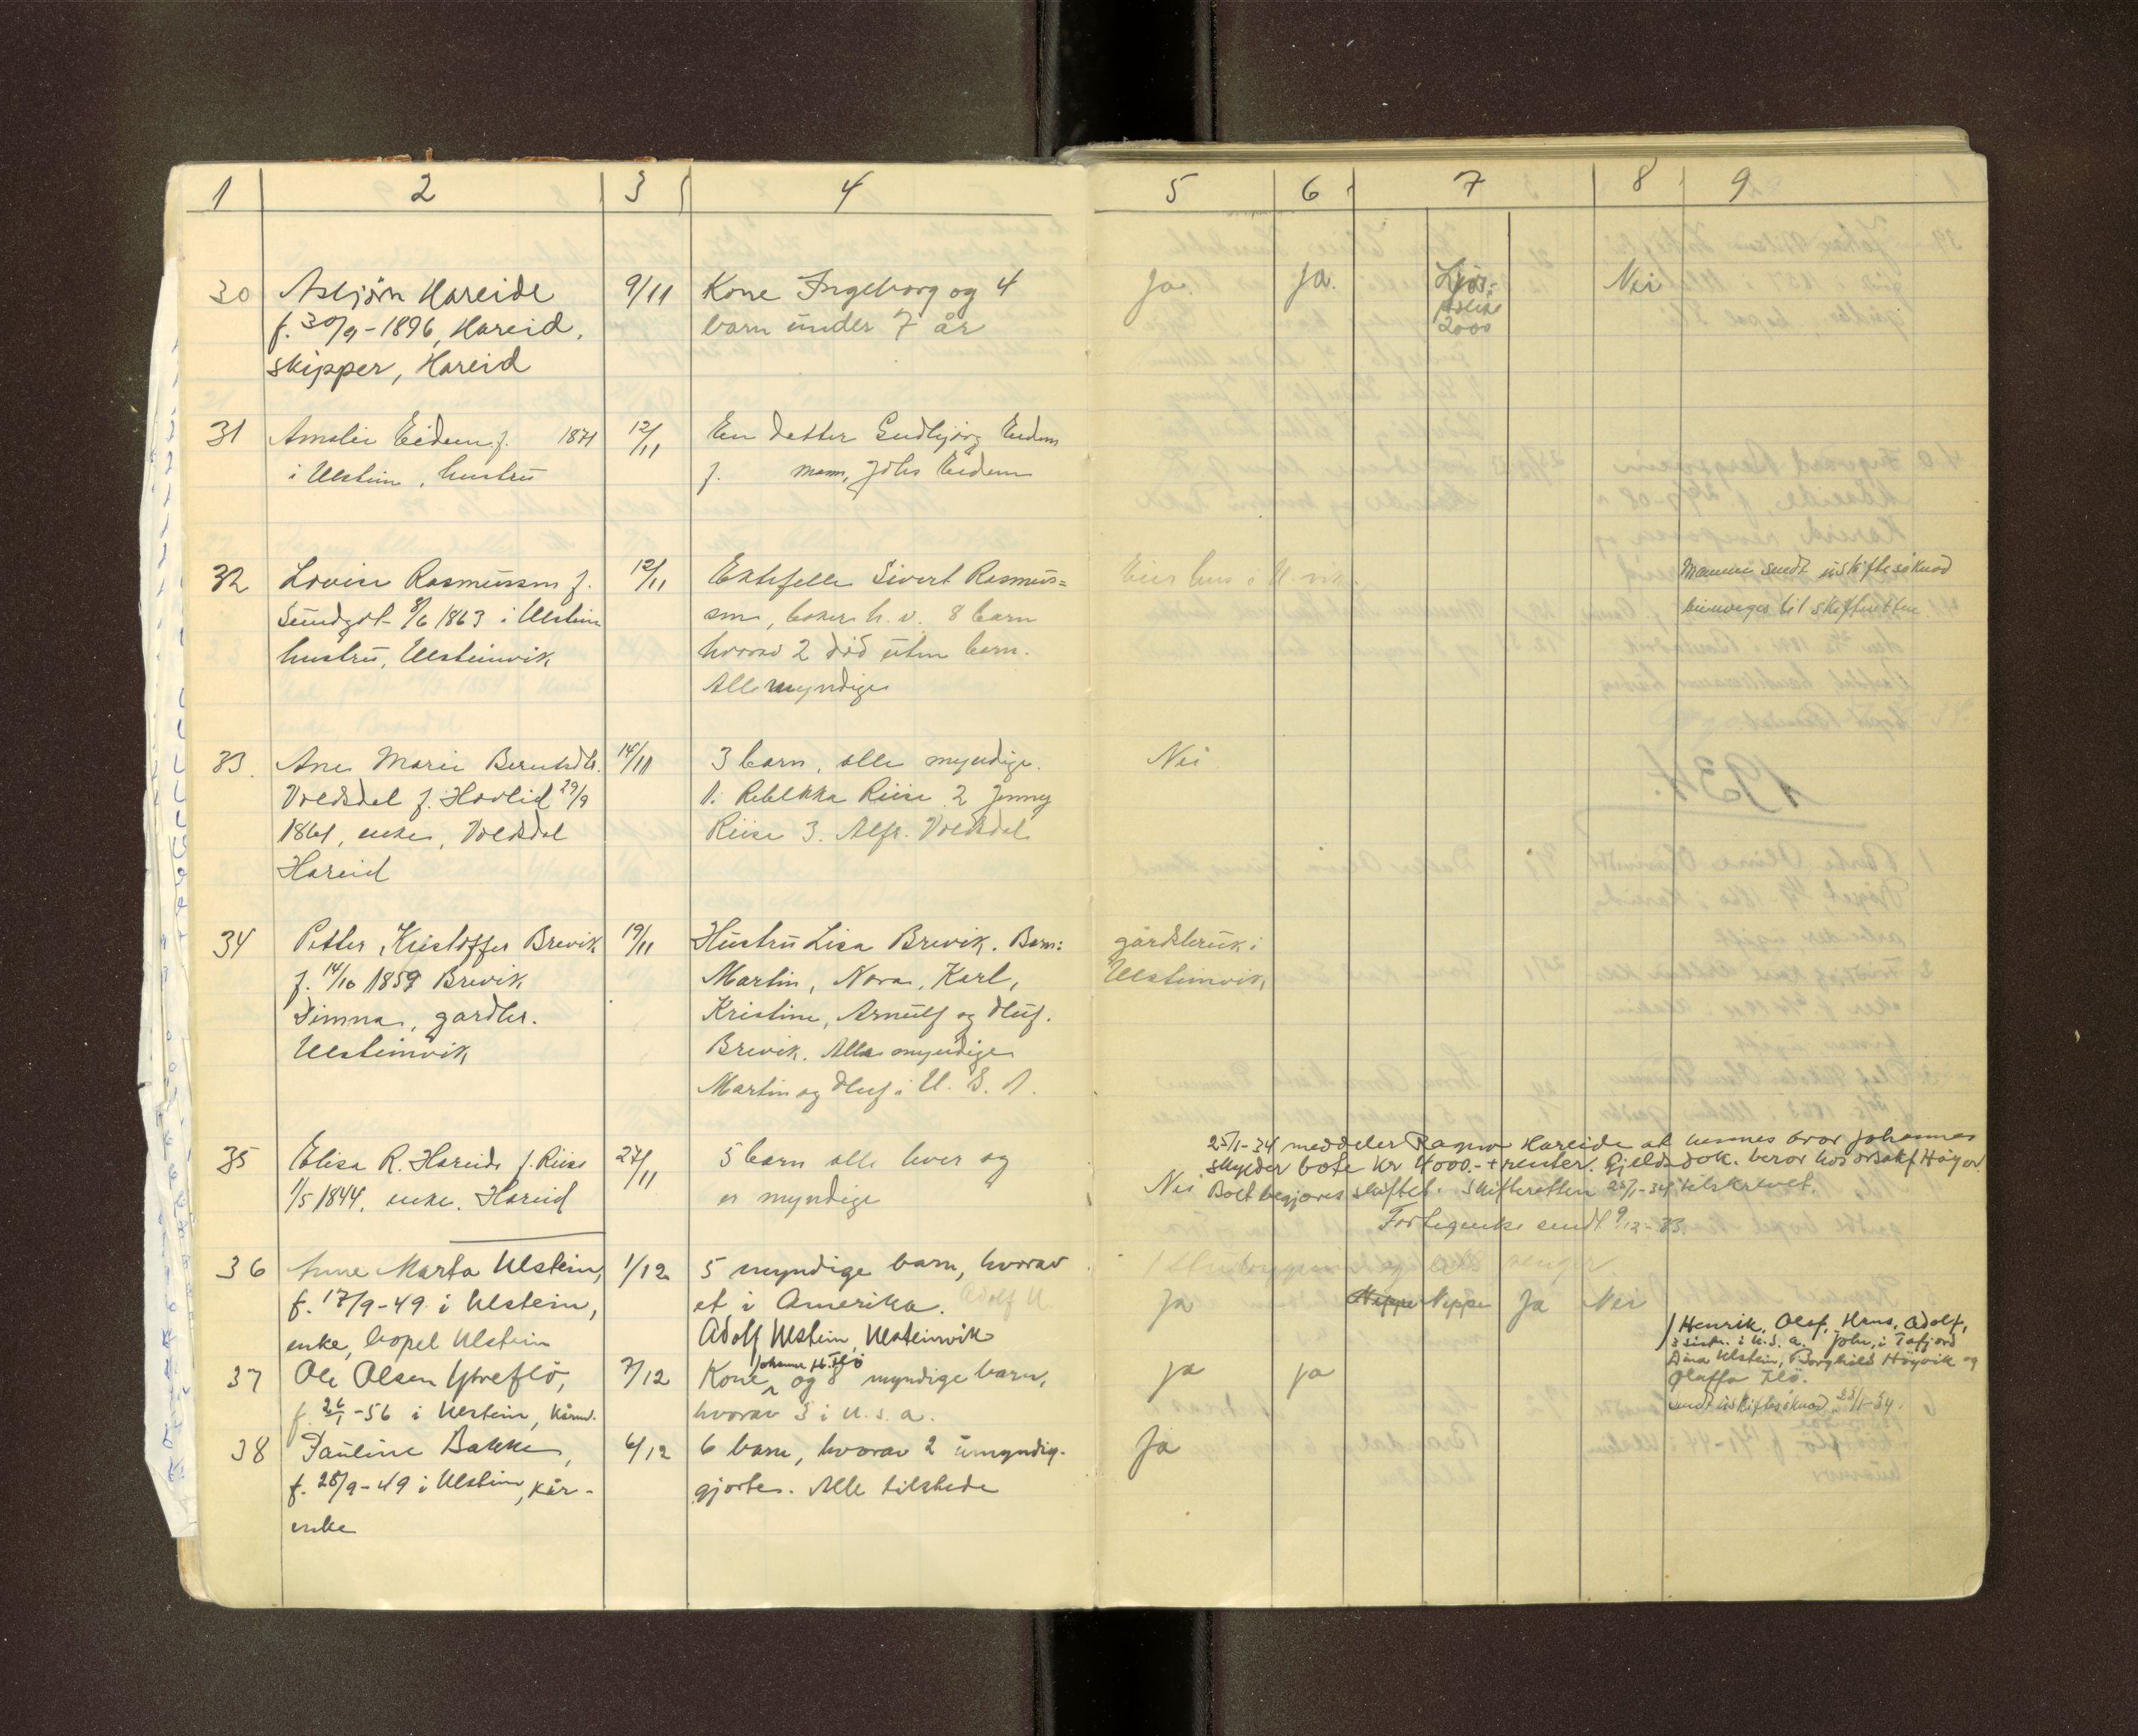 1 2 3 4 5 6 7 8 9
30 Asbjörn Hareide 9/11 Kone Ingeborg og 4 Ja. Ja. Nei
f. 30/9-1896, Hareid, barn under 7 år
skipper, Hareid 2000
31 Amalie Eidem f. 1871 12/11 En datter Gudbjörg Eidem
i Ulstein, hustru f. mann, Johs Eidem
32 Lovise Rasmussen f. 12/11 Ektefelle Sivert Rasmus= Eier hus i U.vik. Mannen sendt uskiftesöknad
Sundgot 8/6 1863 i Ulstein sen, baker h. v. 8 barn til skifteretten
hustru, Ulsteinvik hvorav 2 död uten barn.
Alle myndige
33. Ane Marie Berntsdtr. 14/11 3 barn, alle myndige. Nei
Voldsdal f. Hovlid 29/9 1. Rebekka Riise 2 Jenny
1861, enke, Voldsdal Riise 3. Alfr. Voldsdal
Hareid
34 Petter Kristoffer Brevik 19/11 Hustru Lisa Brevik. Barn: gårdsbruk i
f. 14/10 1859 Brevik Martin, Nora, Karl, Ulsteinvik
Dimna, gardbr. Kristine, Arnulf og Oluf.
Ulsteinvik Brevik. Alle myndige
Martin og Oluf i U. S. A.
25/1-34 meddeler Ragna Hareide at hennes bror Johannes
35 Elisa R. Hareide f. Riise 27/11 5 barn alle hver og skylder boet kr 4000.- + renter. Gjeldsdok. beror hos
1/5 1844, enke. Hareid er myndige Nei Boet begjæres skiftet. Skifteretten 25/1-34 tilskrevet.
Fortegnelse sendt 9/12-33
36 Anne Marta Ulstein, 1/12 5 myndige barn, hvorav
f. 17/9-49 i Ulstein, et i Amerika. Adolf U Ja Neppe Neppe Ja Nei
enke, bopel Ulstein Adolf Ulstein, Ulsteinvik
37 Ole Olsen Ytreflö, 7/12 Kone Johanne og 8 myndige barn, Ja Ja
f. 26/1-56 i Ulstein, kårm. hvorav 3 i U.S.A.
Henrik, Olaf, Hans, Adolf,
3 sistn. i U.S.A. John, i Tafjord
Dina Ulstein, Borghild Höyvik og
Olaffa Flö.
sendt uskiftesöknad 23/1-34.
38 Pauline Bakke, 6/12 6 barn, hvorav 2 umyndig- Ja
f. 28/9-49 i Ulstein, kår- gjorte. Alle tilstede
enke